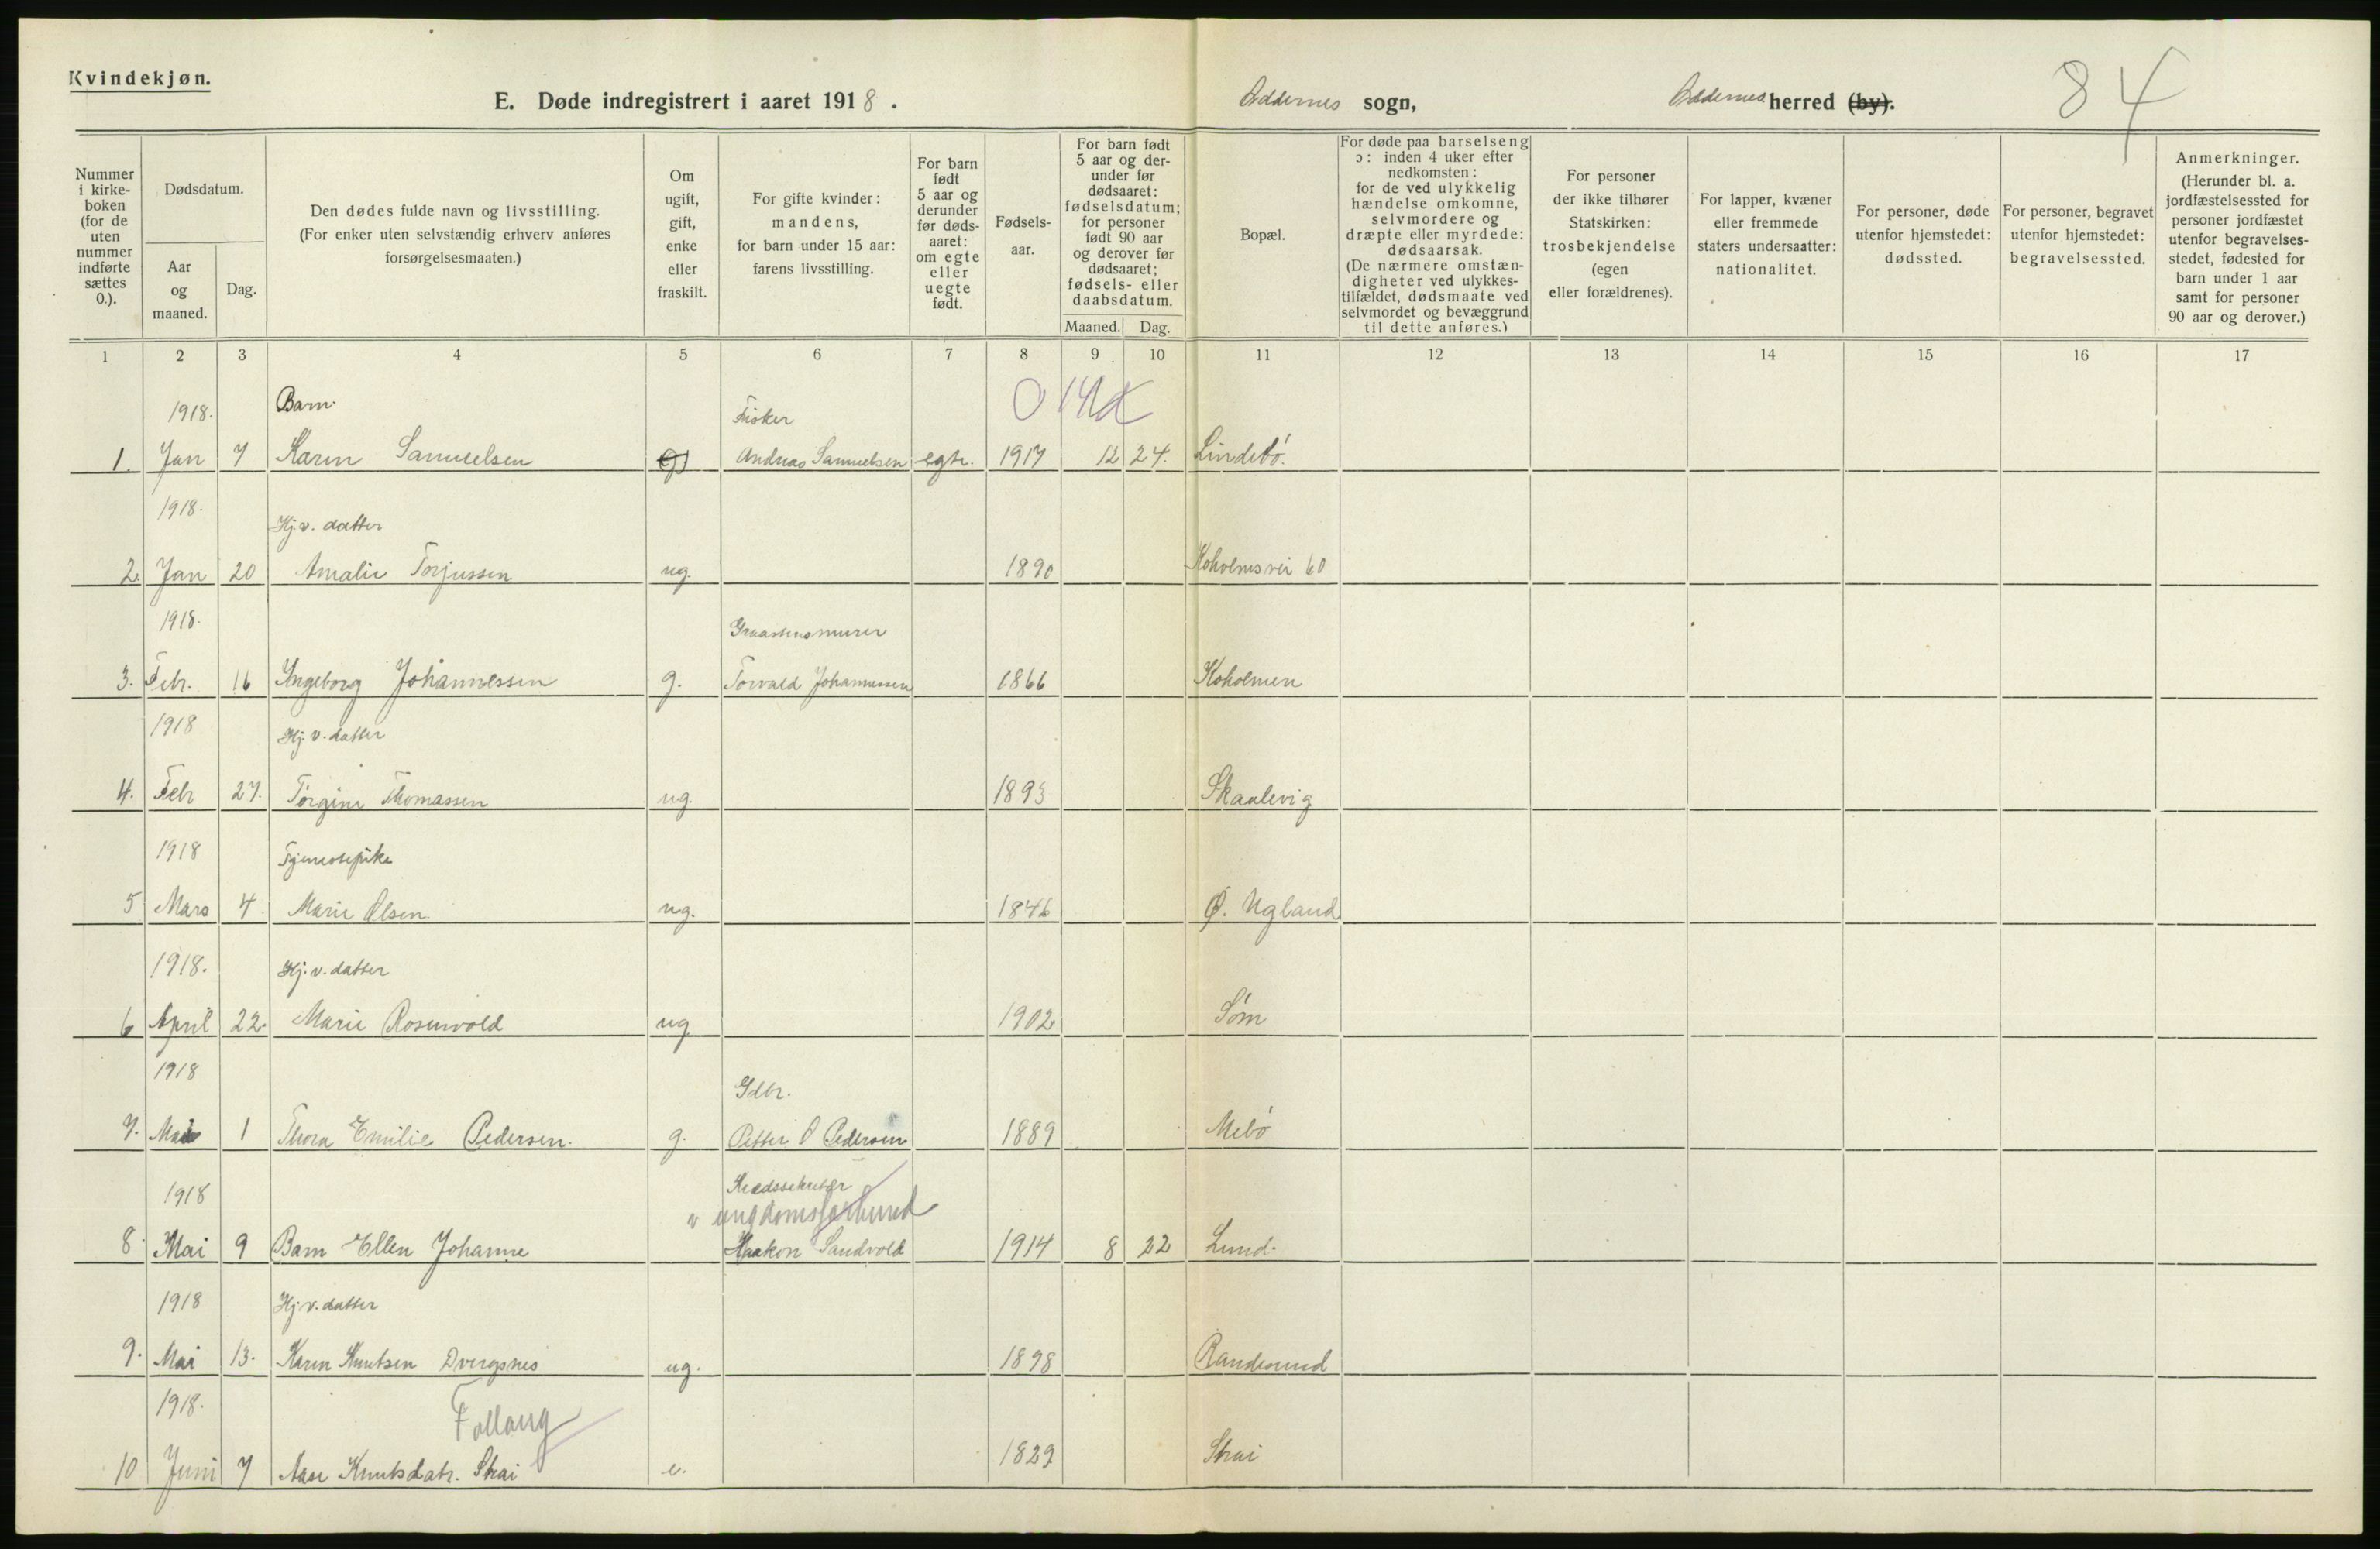 Kvindekjøn.
E. Døde indregistrert i aaret 1918.
Oddernes sogn, Oddernes herred (by).
84
Nummer i kirkeboken (for de uten nummer indførte sættes 0.).
Dødsdatum.
Aar og maaned.
Dag.
Den dødes fulde navn og livsstilling. (For enker uten selvstændig erhverv anføres forsørgelsesmaaten.)
Om ugift, gift, enke eller fraskilt.
For gifte kvinder: mandens, for barn under 15 aar: farens livsstilling.
For barn født 5 aar og derunder før dødsaaret: om egte eller uegte født.
Fødselsaar.
For barn født 5 aar og derunder før dødsaaret: fødselsdatum; for personer født 90 aar og derover før dødsaaret; fødsels- eller daabsdatum.
Maaned. Dag.
Bopæl.
For døde paa barselseng ɔ: inden 4 uker efter nedkomsten: for de ved ulykkelig hændelse omkomne, selvmordere og dræpte eller myrdede: dødsaarsak. (De nærmere omstændigheter ved ulykkestilfældet, dødsmaate ved selvmordet og bevæggrund til dette anføres.)
For personer der ikke tilhører Statskirken: trosbekjendelse (egen eller forældrenes).
For lapper, kvæner eller fremmede staters undersaatter: nationalitet.
For personer, døde utenfor hjemstedet: dødssted.
For personer, begravet utenfor hjemstedet: begravelsessted.
Anmerkninger. (Herunder bl. a. jordfæstelsessted for personer jordfæstet utenfor begravelsesstedet, fødested for barn under 1 aar samt for personer 90 aar og derover.)
1 2 3 4 5 6 7 8 9 10 11 12 13 14 15 16 17
1918. Barn. Fisker
1. Jan 7 Karin Samuelsen Andreas Samuelsen egte. 1917 12 24. Lindebø.
1918. Hj. v. datter
2. Jan 20 Amalie Torjussen ug. 1890 Koholmsvei 60
1918. Graastensmurer
3. Febr. 16 Ingeborg Johannessen g. Torvald Johannessen 1866 Koholmen
1918 Hj. v. datter
4. Febr 27. Torgine Thomassen ug. 1893 Skaalevig
1918 Tjenestepike
5 Mars 4 Marie Olsen ug. 1846 Ø. Ugland
1918. Hj. v. datter
6 April 22. Marie Rosenvold ug 1902 Søm
1918 Gdbr.
7. Mai 1 Thora Emilie Pedersen. g. Petter O Pedersen 1889 Mebø
1918 Kredssekretær
v ungdomsforbund
8. Mai 9 Barn Ellen Johanne Haakon Sandvold 1914 8 22 Lund.
1918 Hj. v. datter
9. Mai 13. Karen Knutsen Dvergsnes ug. 1898 Randesund
1918.
10 Juni 7 Aase Knutsdatr. Strai e. 1829 Strai